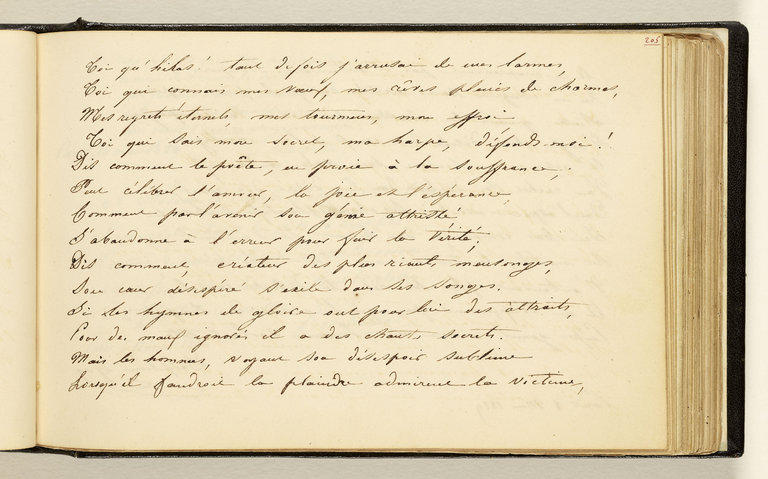 205
Toi qu'hélas! tant de fois j'arrosai de mes larmes,
Toi qui connais mes vœux, mes rêves pleins de charmes,
Mes regrets éternels, mes tourmens, mon effroi
Toi qui sais mon secret, ma harpe, défends-moi!
Dis comment le poête, en proie à la souffrance,
Peut célébrer l'amour, la joie et l'espérance,
Comment par l'avenir son génie attristé
S'abandonne à l'erreur pour fuir la vérité,
Dis comment, créateur des plus riants mensonges,
Son cœur désespéré s'exile dans ses songes.
Si les hymnes de gloire ont pour lui des attraits,
Pour des maux ignorés il a des chants secrets.
Mais les hommes, voyant son désespoir sublime
Lorsqu'il faudroit la plaindre admirent la victime,